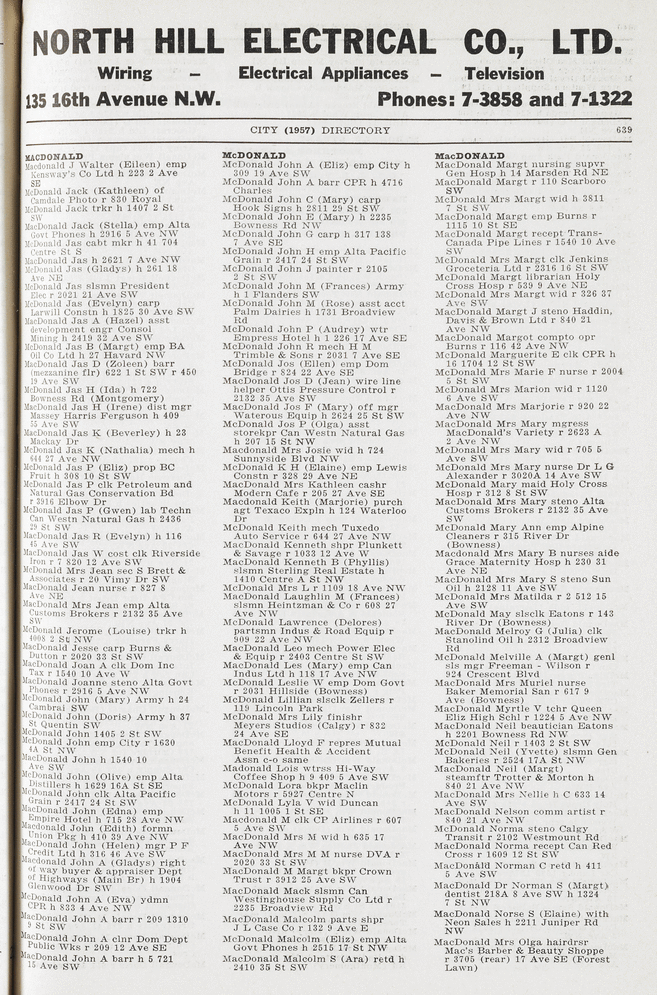 NORTH HILL ELECTRICAL CO., LTD.
Wiring – Electrical Appliances – Television
135 16th Avenue N.W. Phones: 7-3858 and 7-1322
CITY (1957) DIRECTORY 639
MACDONALD
Macdonald J Walter (Eileen) emp
Kensway's Co Ltd h 223 2 Ave
SE
McDonald Jack (Kathleen) of
Camdale Photo r 830 Royal
McDonald Jack trkr h 1407 2 St
SW
MacDonald Jack (Stella) emp Alta
Govt Phones h 2916 5 Ave NW
McDonald Jas cabt mkr h 41 704
Centre St S
MacDonald Jas h 2621 7 Ave NW
McDonald Jas (Gladys) h 261 18
Ave NE
McDonald Jas slsmn President
Elec r 2021 21 Ave SW
McDonald Jas (Evelyn) carp
Larwill Constn h 1825 30 Ave SW
MacDonald Jas A (Hazel) asst
development engr Consol
Mining h 2419 32 Ave SW
MacDonald Jas B (Margt) emp BA
Oil Co Ltd h 27 Havard NW
MacDonald Jas D (Zoleen) barr
(mezzanine flr) 622 1 St SW r 450
19 Ave SW
MacDonald Jas H (Ida) h 722
Bowness Rd (Montgomery)
MacDonald Jas H (Irene) dist mgr
Massey Harris Ferguson h 409
55 Ave SW
MacDonald Jas K (Beverley) h 23
Mackay Dr
MacDonald Jas K (Nathalia) mech h
644 27 Ave NW
MacDonald Jas P (Eliz) prop BC
Fruit h 308 10 St SW
MacDonald Jas P clk Petroleum and
Natural Gas Conservation Bd
r 3916 Elbow Dr
MacDonald Jas P (Gwen) lab Techn
Can Westn Natural Gas h 2436
29 St SW
MacDonald Jas R (Evelyn) h 116
45 Ave SW
MacDonald Jas W cost clk Riverside
Iron r 7 820 12 Ave SW
McDonald Mrs Jean sec S Brett &
Associates r 20 Vimy Dr SW
MacDonald Jean nurse r 827 8
Ave NE
MacDonald Mrs Jean emp Alta
Customs Brokers r 2132 35 Ave
SW
McDonald Jerome (Louise) trkr h
4008 2 St NW
MacDonald Jesse carp Burns &
Dutton r 2020 33 St SW
MacDonald Joan A clk Dom Inc
Tax r 1540 10 Ave W
MacDonald Joanne steno Alta Govt
Phones r 2916 5 Ave NW
McDonald John (Mary) Army h 24
Cambrai SW
McDonald John (Doris) Army h 37
St Quentin SW
McDonald John 1405 2 St SW
McDonald John emp City r 1630
4A St NW
McDonald John h 1540 10
Ave SW
McDonald John (Olive) emp Alta
Distillers h 1629 16A St SE
McDonald John clk Alta Pacific
Grain r 2417 24 St SW
MacDonald John (Edna) emp
Empire Hotel h 715 28 Ave NW
MacDonald John (Edith) formn
Union Pkg h 410 39 Ave NW
MacDonald John (Helen) mgr P F
Credit Ltd h 316 46 Ave SW
Macdonald John A (Gladys) right
of way buyer & appraiser Dept
of Highways (Main Br) h 1904
Glenwood Dr SW
McDonald John A (Eva) ydmn
CPR h 833 4 Ave NW
MacDonald John A barr r 209 1310
9 St SW
MacDonald John A clnr Dom Dept
Public Wks r 209 12 Ave SE
MacDonald John A barr h 5 721
15 Ave SW
McDONALD
McDonald John A (Eliz) emp City h
309 19 Ave SW
McDonald John A barr CPR h 4716
Charles
McDonald John C (Mary) carp
Hook Signs h 2811 29 St SW
McDonald John E (Mary) h 2235
Bowness Rd NW
McDonald John G carp h 317 138
7 Ave SE
McDonald John H emp Alta Pacific
Grain r 2417 24 St SW
McDonald John J painter r 2105
2 St SW
McDonald John M (Frances) Army
h 1 Flanders SW
McDonald John M (Rose) asst acct
Palm Dairies h 1731 Broadview
Rd
McDonald John P (Audrey) wtr
Empress Hotel h 1 226 17 Ave SW
McDonald John R mech H M
Trimble & Sons r 2031 7 Ave SE
McDonald Jos (Ellen) emp Dom
Bridge r 824 22 Ave SE
MacDonald Jos D (Jean) wire line
helper Ottis Pressure Control r
2132 35 Ave SW
MacDonald Jos F (Mary) off mgr
Waterous Equip h 2624 25 St SW
McDonald Jos P (Olga) asst
storekpr Can Westn Natural Gas
h 207 15 St NW
Macdonald Mrs Josie wid h 724
Sunnyside Blvd NW
McDonald K H (Elaine) emp Lewis
Constn r 328 29 Ave NE
MacDonald Mrs Kathleen cashr
Modern Cafe r 205 27 Ave SE
MacDonald Keith (Marjorie) purch
agt Texaco Expln h 124 Waterloo
Dr
McDonald Keith mech Tuxedo
Auto Service r 644 27 Ave NW
MacDonald Kenneth shpr Plunkett
& Savage r 1033 12 Ave W
MacDonald Kenneth B (Phyllis)
slsmn Sterling Real Estate h
1410 Centre A St NW
McDonald Mrs L r 1109 18 Ave NW
MacDonald Laughlin M (Frances)
slsmn Heintzman & Co r 608 27
Ave NW
McDonald Lawrence (Delores)
partsmn Indus & Road Equip r
909 22 Ave NW
MacDonald Leo mech Power Elec
& Equip r 2403 Centre St SW
MacDonald Les (Mary) emp Can
Indus Ltd h 118 17 Ave NW
McDonald Leslie W emp Dom Govt
r 2031 Hillside (Bowness)
McDonald Lillian slsclk Zellers r
119 Lincoln Park
MacDonald Mrs Lily finishr
Meyers Studios (Calgy) r 832
24 Ave SE
MacDonald Lloyd F repres Mutual
Benefit Health & Accident
Assn c-o same
Madonald Lois wtrss Hi-Way
Coffee Shop h 9 409 5 Ave SW
McDonald Lora bkpr Maclin
Motors r 5927 Centre N
McDonald Lyla V wid Duncan
h 11 1005 1 St SE
Macdonald M clk CP Airlines r 607
5 Ave SW
MacDonald Mrs M wid h 635 17
Ave NW
MacDonald Mrs M M nurse DVA r
2020 33 St SW
MacDonald M Margt bkpr Crown
Trust r 3912 25 Ave SW
MacDonald Mack slsmn Can
Westinghouse Supply Co Ltd r
2235 Broadview Rd
MacDonald Malcolm parts shpr
J L Case Co r 132 9 Ave E
McDonald Malcolm (Eliz) emp Alta
Govt Phones h 2515 17 St NW
MacDonald Malcolm S (Ara) retd h
2410 35 St SW
MacDONALD
MacDonald Margt nursing supvr
Gen Hosp h 14 Marsden Rd NE
MacDonald Margt r 110 Scarboro
SW
McDonald Mrs Margt wid h 3811
7 St SW
MacDonald Margt emp Burns r
1115 10 St SE
MacDonald Margt recept Trans-
Canada Pipe Lines r 1540 10 Ave
SW
McDonald Mrs Margt clk Jenkins
Groceteria Ltd r 2316 16 St SW
McDonald Margt librarian Holy
Cross Hosp r 539 9 Ave NE
McDonald Mrs Margt wid r 326 37
Ave SW
MacDonald Margt J steno Haddin,
Davis & Brown Ltd r 840 21
Ave NW
MacDonald Margot compto opr
Burns r 116 42 Ave NW
McDonald Marguerite E clk CPR h
16 1704 12 St SW
McDonald Mrs Marie F nurse r 2004
5 St SW
McDonald Mrs Marion wid r 1120
6 Ave SW
McDonald Mrs Marjorie r 920 22
Ave NW
MacDonald Mrs Mary mgress
MacDonald's Variety r 2623 A
2 Ave NW
McDonald Mrs Mary wid r 705 5
Ave SW
MacDonald Mrs Mary nurse Dr L G
Alexander r 3020A 14 Ave SW
McDonald Mary maid Holy Cross
Hosp r 312 8 St SW
MacDonald Mrs Mary steno Alta
Customs Brokers r 2132 35 Ave
SW
McDonald Mary Ann emp Alpine
Cleaners r 315 River Dr
(Bowness)
Macdonald Mrs Mary B nurses aide
Grace Maternity Hosp h 230 31
Ave NE
MacDonald Mrs Mary S steno Sun
Oil h 2128 11 Ave SW
McDonald Mrs Matilda r 2 512 15
Ave SW
McDonald May slsclk Eatons r 143
River Dr (Bowness)
MacDonald Melroy G (Julia) clk
Stanolind Oil h 2312 Broadview
Rd
McDonald Melville A (Margt) genl
sls mgr Freeman - Wilson r
924 Crescent Blvd
MacDonald Mrs Muriel nurse
Baker Memorial San r 617 9
Ave (Bowness)
MacDonald Myrtle V tchr Queen
Eliz High Schl r 1224 5 Ave NW
McDonald Neil beautician Eatons
h 2201 Bowness Rd NW
McDonald Neil r 1403 2 St SW
McDonald Neil (Yvette) slsmn Gen
Bakeries r 2524 17A St NW
MacDonald Neil (Margt)
steamftr Trotter & Morton h
840 21 Ave NW
MacDonald Mrs Nellie h C 633 14
Ave SW
MacDonald Nelson comm artist r
840 21 Ave NW
McDonald Norma steno Calgy
Transit r 2102 Westmount Rd
MacDonald Norma recept Can Red
Cross r 1609 12 St SW
MacDonald Norman C retd h 411
5 Ave SW
MacDonald Dr Norman S (Margt)
dentist 218A 8 Ave SW h 1324
7 St NW
MacDonald Norse S (Elaine) with
Neon Sales h 2211 Juniper Rd
NW
MacDonald Mrs Olga hairdrsr
Mac's Barber & Beauty Shoppe
r 3705 (rear) 17 Ave SE (Forest
Lawn)